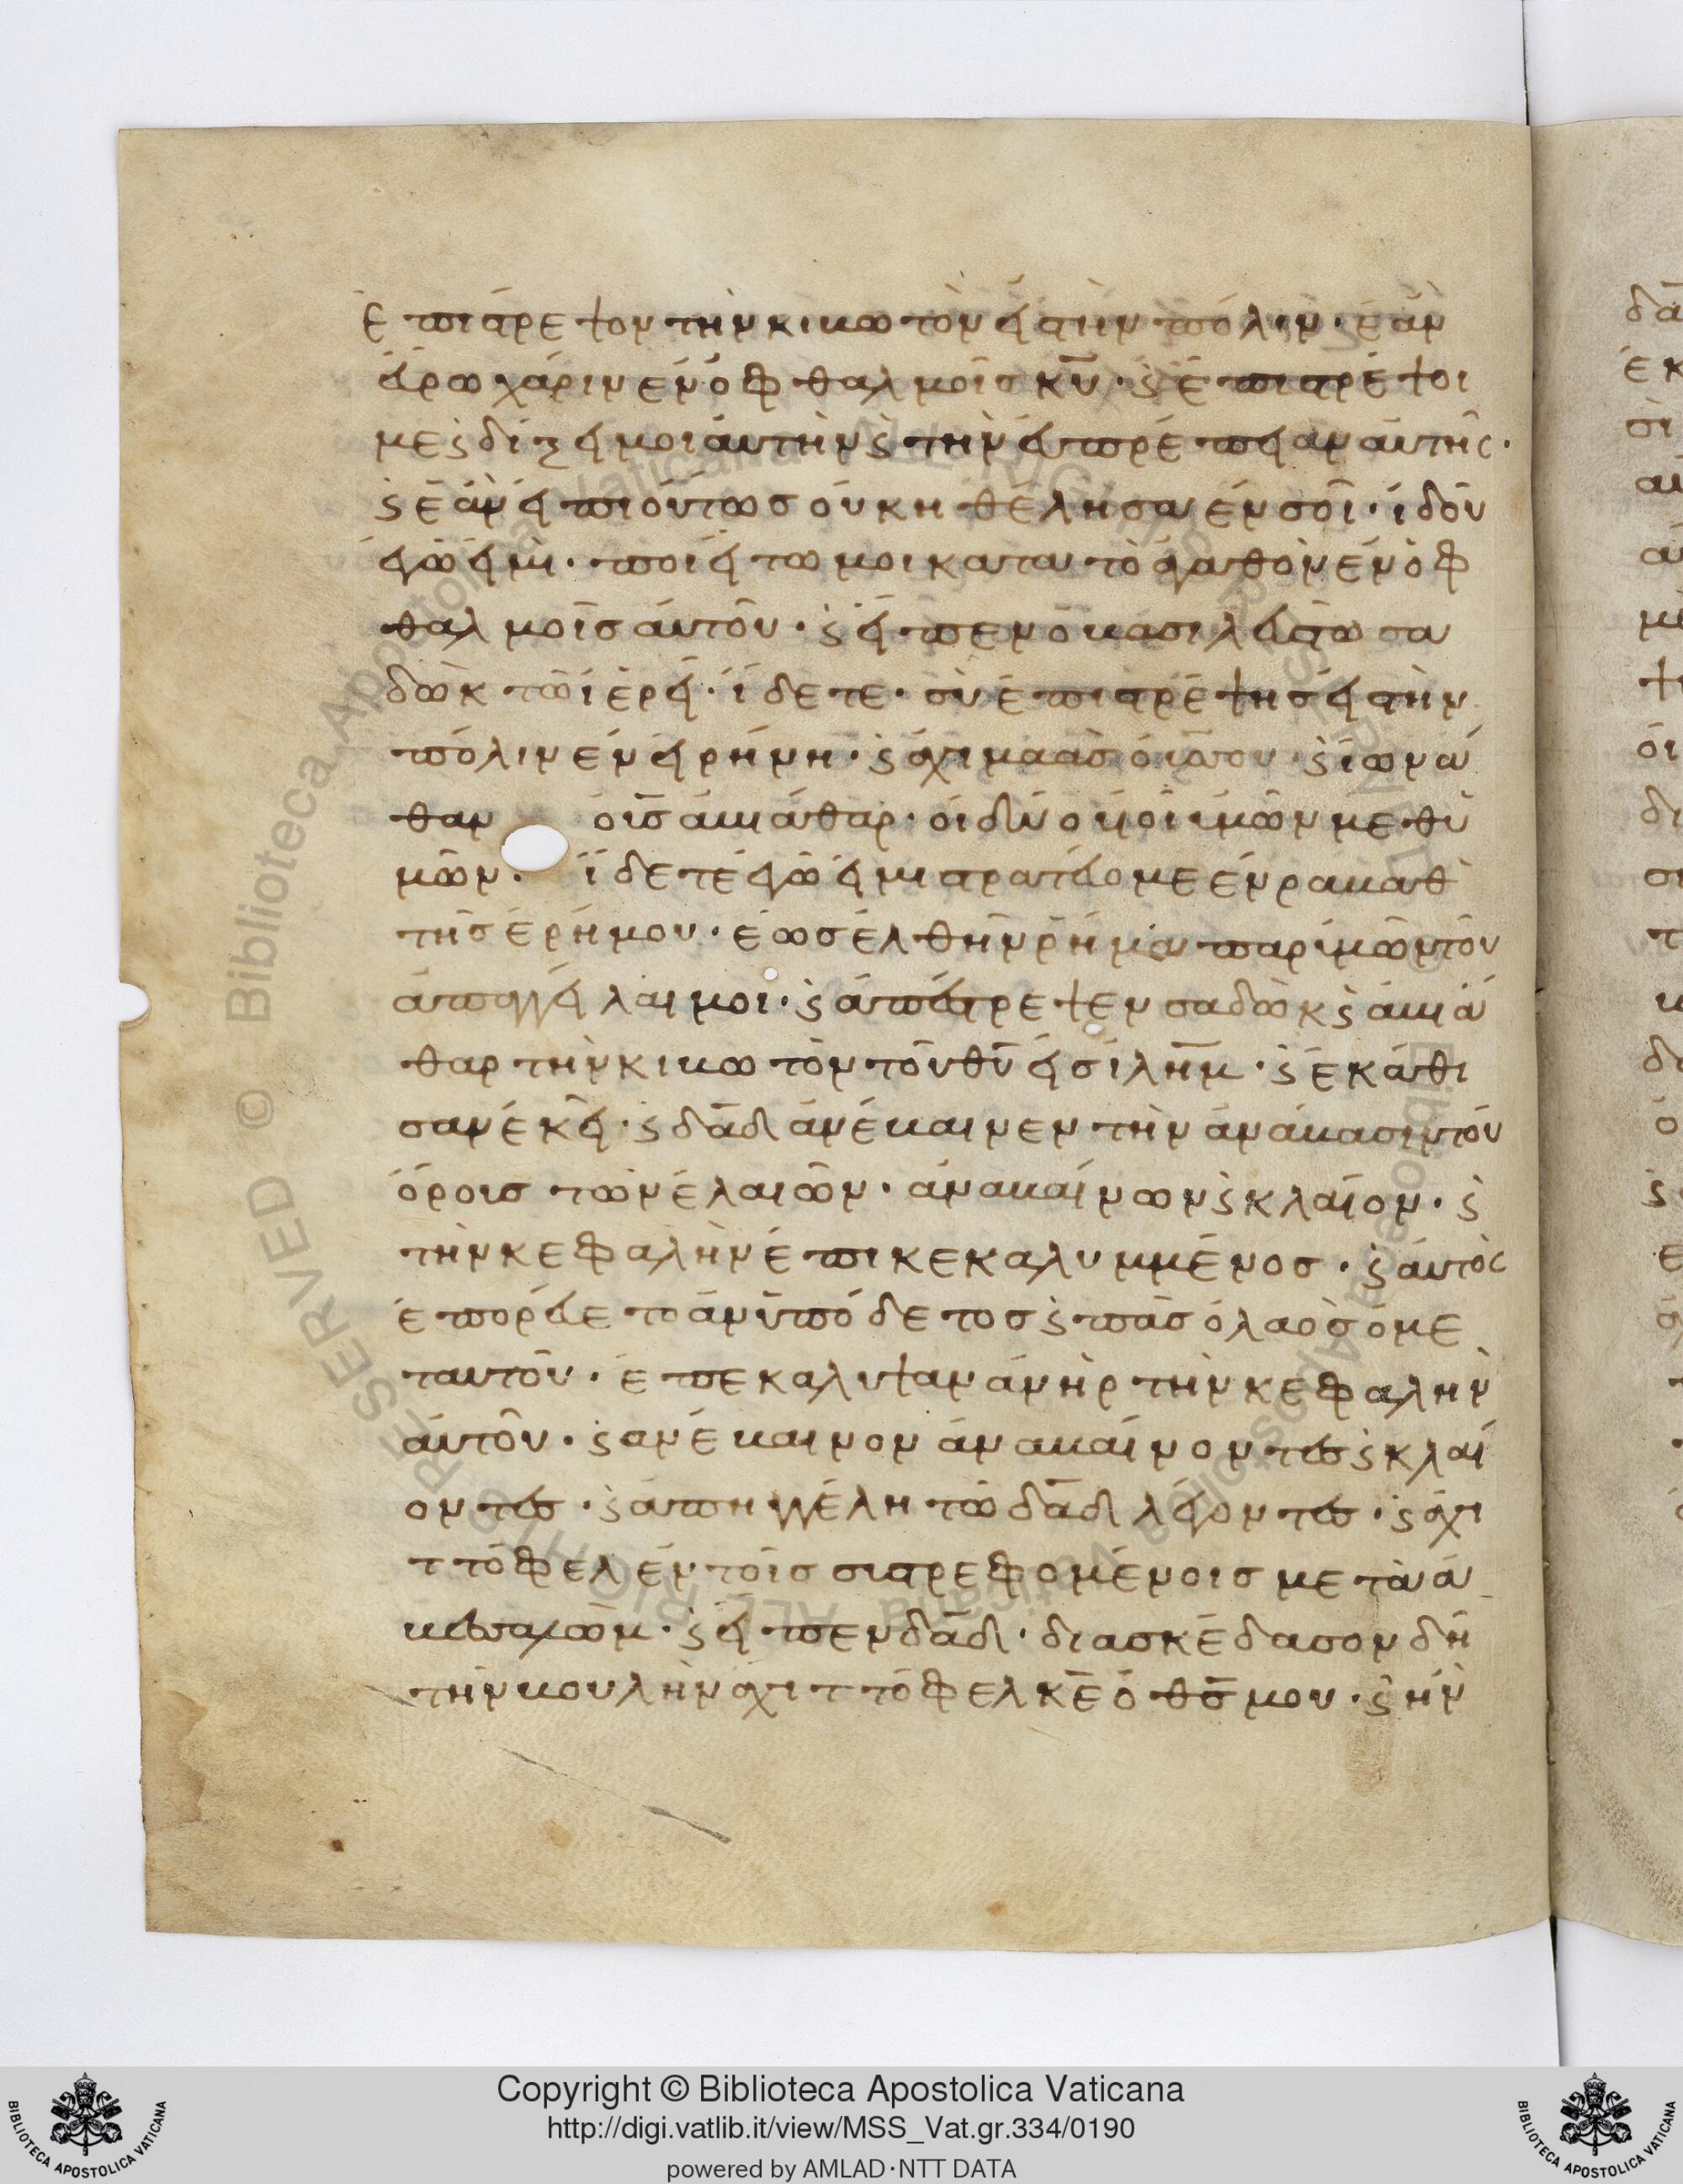 ἐπίστρεψον τὴν κιβωτὸν εἰς τὴν πόλιν· ἐὰν
εὕρω χάριν ἐν ὀφθαλμοῖς κυ̅· ϗ ἐπιστρέψοι
με ϗ δίξει μοι αὐτὴν ϗ τὴν εὐπρέπειαν αὐτῆς·
ϗ ἐὰν εἴπι οὕτως οὐκ ηθέλησα ἐν σοῖ· ἰδοὺ
ἐγὼ εἰμὶ· ποιείτω μοι κατα τὸ ἀγαθὸν ἐν ὀφ
θαλμοῖς αὐτοῦ· ϗ εἶπεν ὁ βασιλεὺς τῶ σα
δὼκ τῶ ἱερεῖ· ἴδετε· σὺ ἐπιστρέψης εἰς τὴν
πόλιν ἐν εἰρήνη· ϗ ἀχιμαὰς ὁ υἱός σου· ϗ ἰωνά
θαν ὁ υἱὸς ἀβιάθαρ· οἱ δύο υἱοὶ ὑμῶν μεθ ὑ
μῶν· ἴδετε ἐγὼ εἰμι στρατεύομε ἐν ραβαθ
τῆς ἐρήμου· ἕως ἐλθῆν ρῆμα παρ ὑμῶν τοῦ
ἀπαγγεῖλαι μοι· ϗ ἀπέστρεψεν σαδὼκ ϗ ἀβιά
θαρ τὴν κιβωτὸν τοῦ θυ̅ εἰς ιλη̅μ· ϗ ἐκάθι
σαν ἐκεῖ· ϗ δα̅δ ἀνέβαινεν τὴν ἀνάβασιν τοῦ
ὄροις τῶν ἐλαιῶν· ἀναβαίνων ϗ κλαίον· ϗ
τὴν κεφαλὴν ἐπικεκαλυμμένος· ϗ αὐτὸς
ἐπορεύετο ἀνυπόδετος ϗ πᾶς ὁ λαὸς ὁ με
ταυτοῦ· ἐπεκαλυψαν ἀνὴρ τὴν κεφαλὴν
αὐτοῦ· ϗ ανέβαινον ἀναβαίνοντες ϗ κλαί
οντες· ϗ ἀπηγγέλη τῶ δα̅δ λέγοντες· ϗ ἀχι
ττόφελ ἐν τοῖς συστρεφομένοις μετὰ ἀ
βεσαλώμ· ϗ εἶπεν δα̅δ· διασκέδασον δὴ
τὴν βουλὴν ἀχιττόφελ κε̅ ὁ θσ̅ μου· ϗ ἦν
Copyright © Biblioteca Apostolica Vaticana
http://digi.vatlib.it/view/MSS_Vat.gr.334/0190
powered by AMLAD·NTT DATA